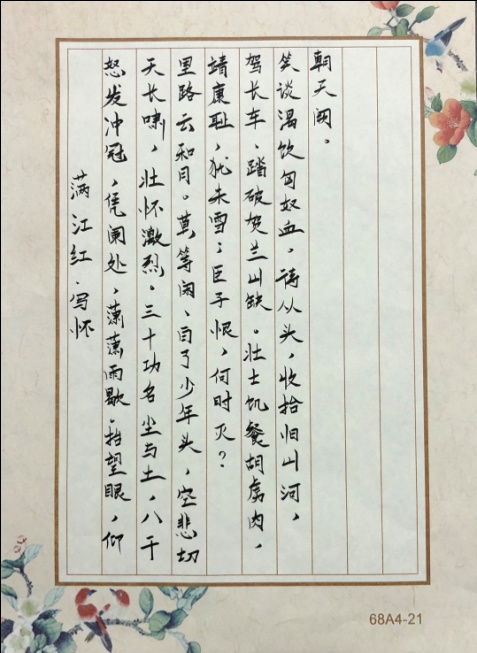 满江红·写怀
怒发冲冠，凭阑处，潇潇雨歇。抬望眼，仰
天长啸，壮怀激烈。三十功名尘与土，八千
里路云和月。莫等闲、白了少年头，空悲切
靖康耻，犹未雪；臣子恨，何时灭？
驾长车、踏破贺兰山缺。壮士饥餐胡虏肉，
笑谈渴饮匈奴血，待从头，收拾旧山河，
朝天阙。
68A4-21